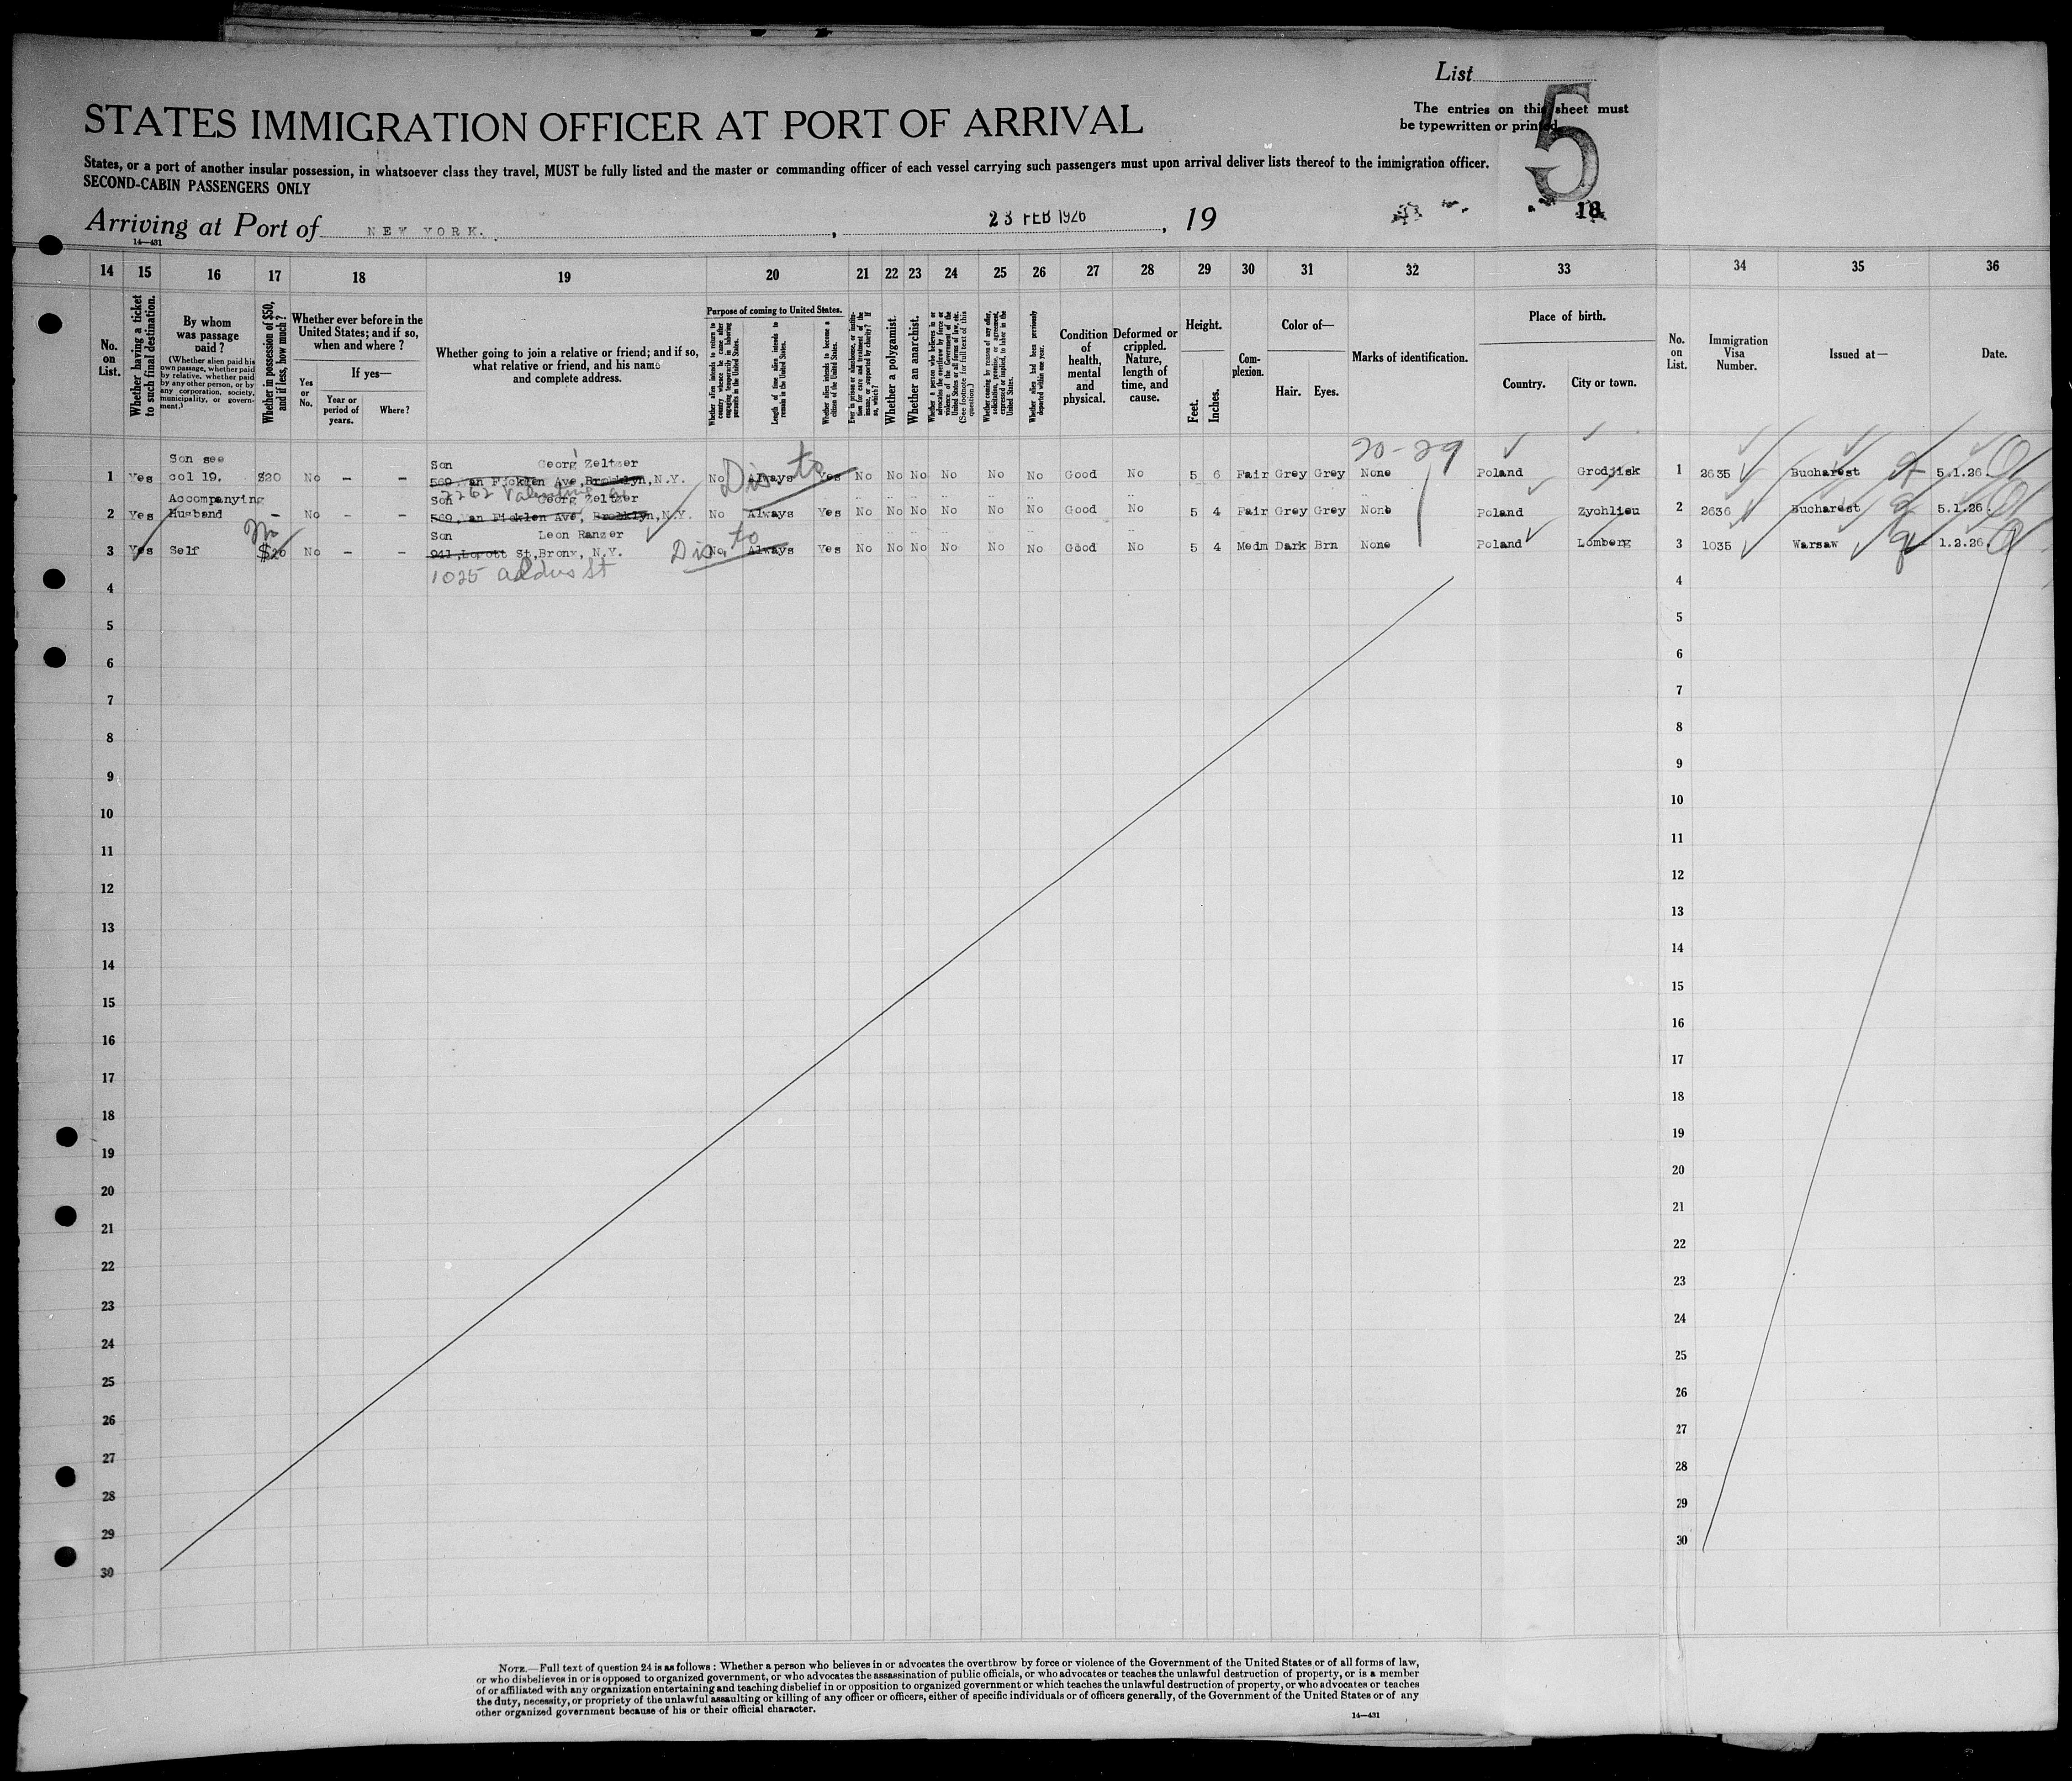 List
The entries on this sheet must
be typewritten or printed.
5
18
STATES IMMIGRATION OFFICER AT PORT OF ARRIVAL
States, or a port of another insular possession, in whatsoever class they travel, MUST be fully listed and the master or commanding officer of each vessel carrying such passengers must upon arrival deliver lists thereof to the immigration officer.
SECOND-CABIN PASSENGERS ONLY
Arriving at Port of NEW YORK. , 23 FEB 1926 , 19
14—431
14 15 16 17 18 19 20 21 22 23 24 25 26 27 28 29 30 31 32 33 34 35 36
No. on List.
Whether having a ticket to such final destination.
By whom was passage paid?
(Whether alien paid his own passage, whether paid by relative, whether paid by any other person, or by any corporation, society, municipality, or government.)
Whether in possession of $50, and if less, how much?
Whether ever before in the United States; and if so, when and where?
Yes or No.
If yes—
Year or period of years.
Where?
Whether going to join a relative or friend; and if so, what relative or friend, and his name and complete address.
Purpose of coming to United States.
Whether alien intends to return to country whence he came after engaging temporarily in laboring pursuits in the United States.
Length of time alien intends to remain in the United States.
Whether alien intends to become a citizen of the United States.
Ever in prison or almshouse, or institution for care and treatment of the insane, or supported by charity? If so, which?
Whether a polygamist.
Whether an anarchist.
Whether a person who believes in or advocates the overthrow by force or violence of the Government of the United States or all forms of law, etc. (See footnote for full text of this question.)
Whether coming by reason of any offer, solicitation, promise, or agreement, expressed or implied, to labor in the United States.
Whether alien had been previously deported within one year.
Condition of health, mental and physical.
Deformed or crippled. Nature, length of time, and cause.
Height.
Feet.
Inches.
Complexion.
Color of—
Hair. Eyes.
Marks of identification.
Place of birth.
Country. City or town.
No. on List.
Immigration Visa Number.
Issued at—
Date.
20-29
Son see Son Georg Zeltzer Dis to
1 Yes col 19. $20 No - - 569 Van Ficklen Ave, Brooklyn, N.Y. No Always Yes No No No No No No Good No 5 6 Fair Grey Grey None Poland Grodjisk 1 2635 Bucharest 5.1.26.
2262 Valentine av
Accompanying Son Georg Zeltzer
2 Yes Husband - No - - 569, Van Ficklen Ave, Brooklyn, N.Y. No Always Yes No No No No No No Good No 5 4 Fair Grey Grey None Poland Zychlieu 2 2636 Bucharest 5.1.26.
Son Leon Ranzer Dis to
3 Yes Self $20 No - - 941, St, Bronx, N.Y. No. Always Yes No No No No No No Good No 5 4 Medm Dark Brn None Poland Lomberg 3 1035 Warsaw 1.2.26.
1025 Aldus St
4 4
5 5
6 6
7 7
8 8
9 9
10 10
11 11
12 12
13 13
14 14
15 15
16 16
17 17
18 18
19 19
20 20
21 21
22 22
23 23
24 24
25 25
26 26
27 27
28 28
29 29
30 30
NOTE.—Full text of question 24 is as follows: Whether a person who believes in or advocates the overthrow by force or violence of the Government of the United States or of all forms of law,
or who disbelieves in or is opposed to organized government, or who advocates the assassination of public officials, or who advocates or teaches the unlawful destruction of property, or is a member
of or affiliated with any organization entertaining and teaching disbelief in or opposition to organized government or which teaches the unlawful destruction of property, or who advocates or teaches
the duty, necessity, or propriety of the unlawful assaulting or killing of any officer or officers, either of specific individuals or of officers generally, of the Government of the United States or of any
other organized government because of his or their official character.
14—431